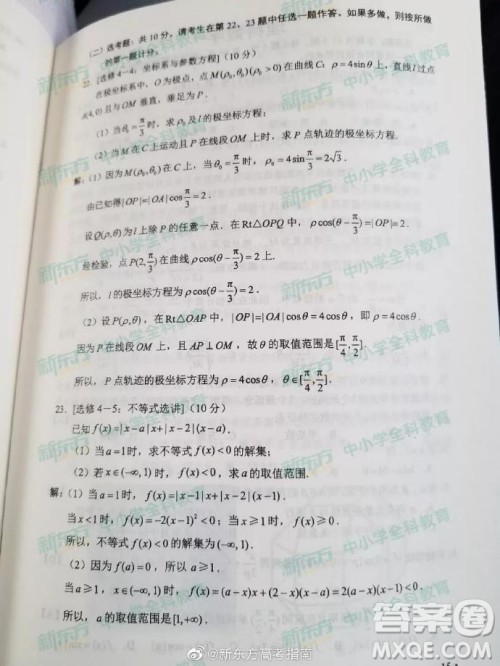 (二)选考题:共10分。请考生在第22、23题中任选一题作答。如果多做,则按所做
的第一题计分。
22. [选修4-4:坐标系与参数方程](10分)
在极坐标系中,O为极点,点M(ρ₀,θ₀)(ρ₀>0)在曲线C:ρ=4sinθ上,直线l过点
A(4,0)且与OM垂直,垂足为P.
(1)当θ₀=π/3时,求ρ₀及l的极坐标方程;
(2)当M在C上运动且P在线段OM上时,求P点轨迹的极坐标方程.
解:(1)因为M(ρ₀,θ₀)在C上,当θ₀=π/3时,ρ₀=4sinπ/3=2√3.
由已知得|OP|=|OA|cosπ/3=2.
设Q(ρ,θ)为l上除P的任意一点.在Rt△OPQ中,ρcos(θ-π/3)=|OP|=2.
经检验,点P(2,π/3)在曲线ρcos(θ-π/3)=2上.
所以,l的极坐标方程为ρcos(θ-π/3)=2.
(2)设P(ρ,θ),在Rt△OAP中,|OP|=|OA|cosθ=4cosθ,即ρ=4cosθ.
因为P在线段OM上,且AP⊥OM,故θ的取值范围是[π/4,π/2].
所以,P点轨迹的极坐标方程为ρ=4cosθ,θ∈[π/4,π/2].
23. [选修4-5:不等式选讲](10分)
已知f(x)=|x-a|x+|x-2|(x-a).
(1)当a=1时,求不等式f(x)<0的解集;
(2)若x∈(-∞,1)时,f(x)<0,求a的取值范围.
解:(1)当a=1时,f(x)=|x-1|x+|x-2|(x-1).
当x<1时,f(x)=-2(x-1)²<0;当x≥1时,f(x)≥0.
所以,不等式f(x)<0的解集为(-∞,1).
(2)因为f(a)=0,所以a≥1.
当a≥1,x∈(-∞,1)时,f(x)=(a-x)x+(2-x)(x-a)=2(a-x)(x-1)<0.
所以,a的取值范围是[1,+∞).
新东方 中小学全科教育
新东方 中小学全科教育
新东方 中小学全科教育
新东方 中小学全科教育
@新东方高考指南
答案圈
MXQE.COM